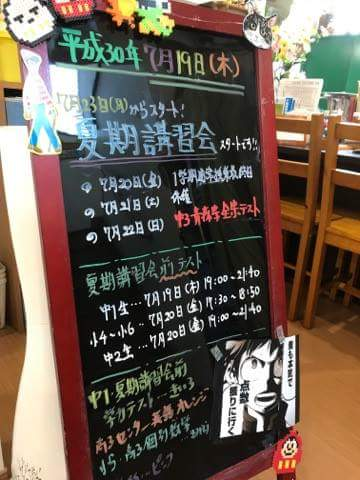 平成30年 7月19日(木)
7月23日(月)からスタート!
夏期講習会 スタートです!!
7月20日(金)
7月21日(土) 休塾
7月22日(日) 中3
テスト
夏期講習会前テスト
中1生…7月19日(木) 19:00~21:40
小4~小6…7月20日(金) 17:30~18:50
中2生…7月20日(金) 19:00~21:40
中1・夏期講習会前
学力テスト
高3センター英語 オレンジ
小5・高3個別数学
ピンク
俺も本気で
点数
獲りに行く